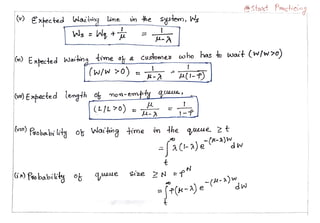 @Start Practicing
(v) Expected Waiting time in the system, Ws
Ws = Wq + 1/μ = 1/(μ-λ)
(vi) Expected Waiting time of a customer who has to wait (W/W>0)
(W/W>0) = 1/(μ-λ) = 1/(μ(1-ρ))
(vii) Expected length of non-empty queue,
(L/L>0) = μ/(μ-λ) = 1/(1-ρ)
(viii) Probability of Waiting time in the queue ≥ t
= ∫ₜ^∞ λ(1-λ) e^-(μ-λ)w dw
(ix) Probability of queue size ≥ N = ρ^N
= ∫ₜ^∞ ρ(μ-λ) e^-(μ-λ)w dw